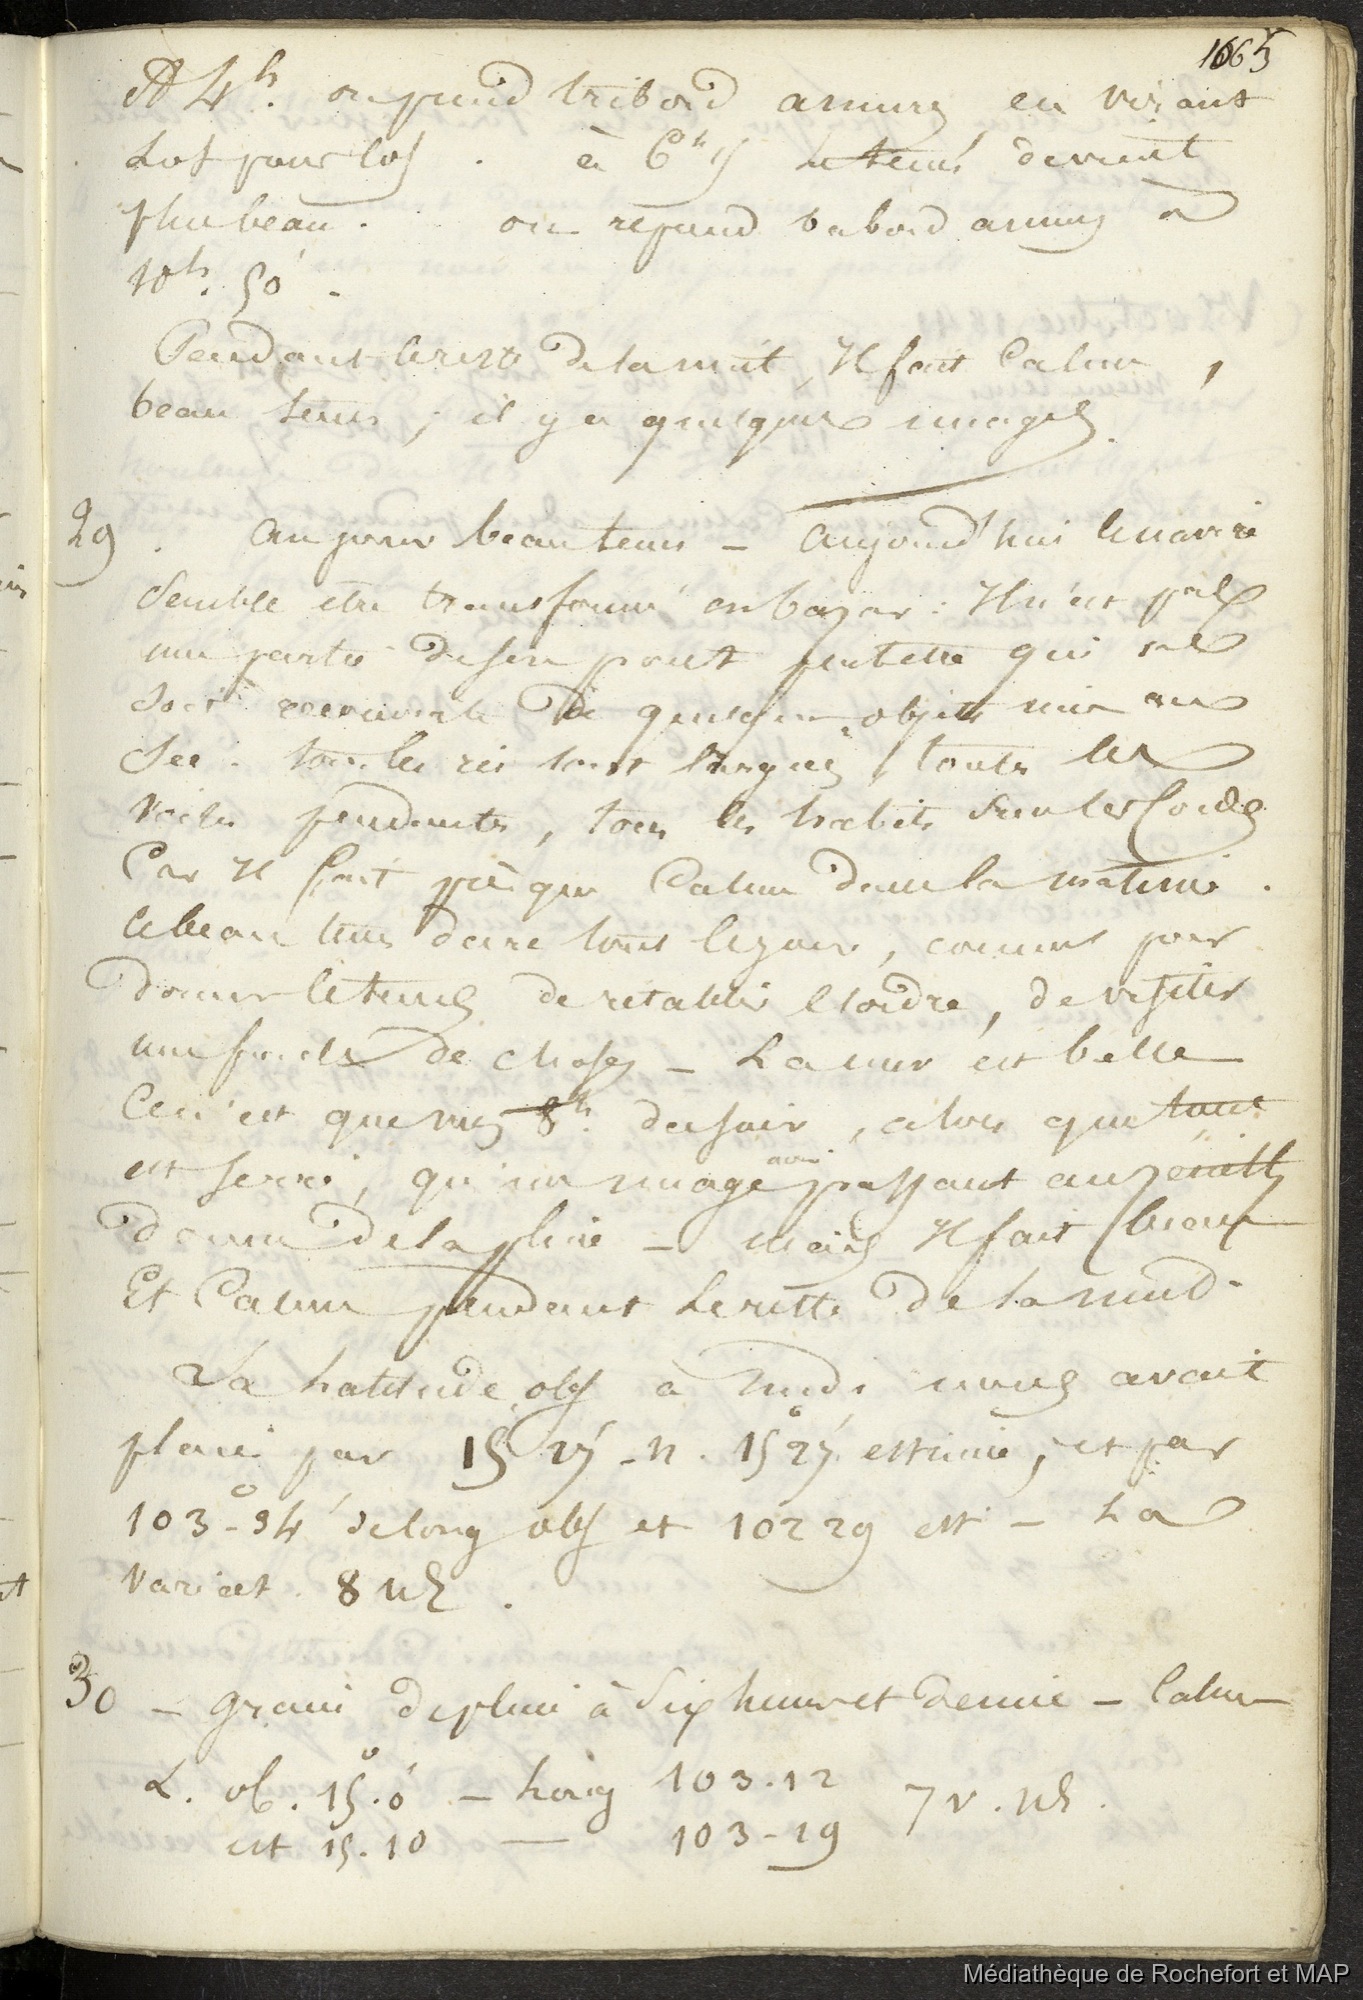 1665
A 4h. on prend tribord amures en virant
Lof pour lof . à 6h 15 le tems devient
plus beau . on reprend babord amures à
10h. 50' .
Pendant le reste de la nuit, Il fait Calme ,
beau tems ; il y a quelques nuages .
29 . Au jour beau tems – aujourd'hui le navire
Semble être transformé en bazar : Il n'est pas
une partie de son pont peutetre qui ne
soit recouverte de quelques objets mis au
Sec . tous les ris sont largués , toutes les
voiles pendantes , tous les habits sur les Cordes
Car Il fait presque Calme dans la matinée .
le beau tems dure tout le jour , comme pour
donner le tems de rétablir l'ordre , de visiter
une foule de choses – La mer est belle
Ce n'est que vers 8h. du soir , alors que tout
est serré , qu'un nuage passant au zenith
donne de la pluie – mais Il fait beau
Et Calme pendant le reste de la nuit .
La Latitude obs à midi nous avait
placé par 15 27' – N . 15° 27' estimée ; et par
103° – 34' de long obs et 102 29 est – La
variat . 8 NE .
30 – grain de pluie à Six heures et demie – Calme
L . ob . 15°. 0' – Long 103 . 12
7 v . NE .
est 15 . 10 — 103 – 19
Médiathèque de Rochefort et MAP